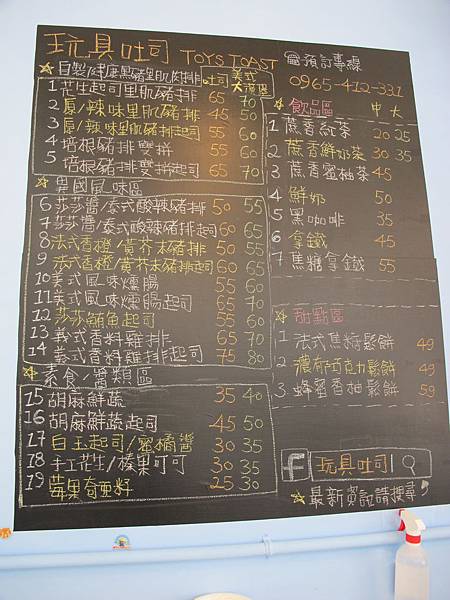 玩具吐司 TOYS TOAST
☆自製健康黑豬里肌肉排 吐司 美式大漢堡
1 花生起司里肌豬排 65 70
2 原/辣味里肌豬排 45 50
3 原/辣味里肌豬排起司 55 60
4 培根豬排雙拼 55 60
5 培根豬排雙拼起司 65 70
☆異國風味區
6 莎莎醬/泰式酸辣豬排 50 55
7 莎莎醬/泰式酸辣豬排起司 60 65
8 法式香橙/黃芥末豬排 50 55
9 法式香橙/黃芥末豬排起司 60 65
10 美式風味燻腸 55 60
11 美式風味燻腸起司 65 70
12 莎莎鮪魚起司 55 60
13 義式香料雞排 65 70
14 義式香料雞排起司 75 80
☆素食/醬類區
15 胡麻鮮蔬 35 40
16 胡麻鮮蔬起司 45 50
17 白玉起司/蜜橘醬 30 35
18 手工花生/榛果可可 30 35
19 莓果奇亞籽 25 30
預訂專線
0965-412-331
☆飲品區 中 大
1 蔗香紅茶 20 25
2 蔗香鮮奶茶 30 35
3 蔗香蜜柚茶 45
4 鮮奶 50
5 黑咖啡 35
6 拿鐵 45
7 焦糖拿鐵 55
☆甜點區
1 法式焦糖鬆餅 49
2 濃郁巧克力鬆餅 49
3 蜂蜜香柚鬆餅 59
f 玩具吐司
☆最新資訊請搜尋